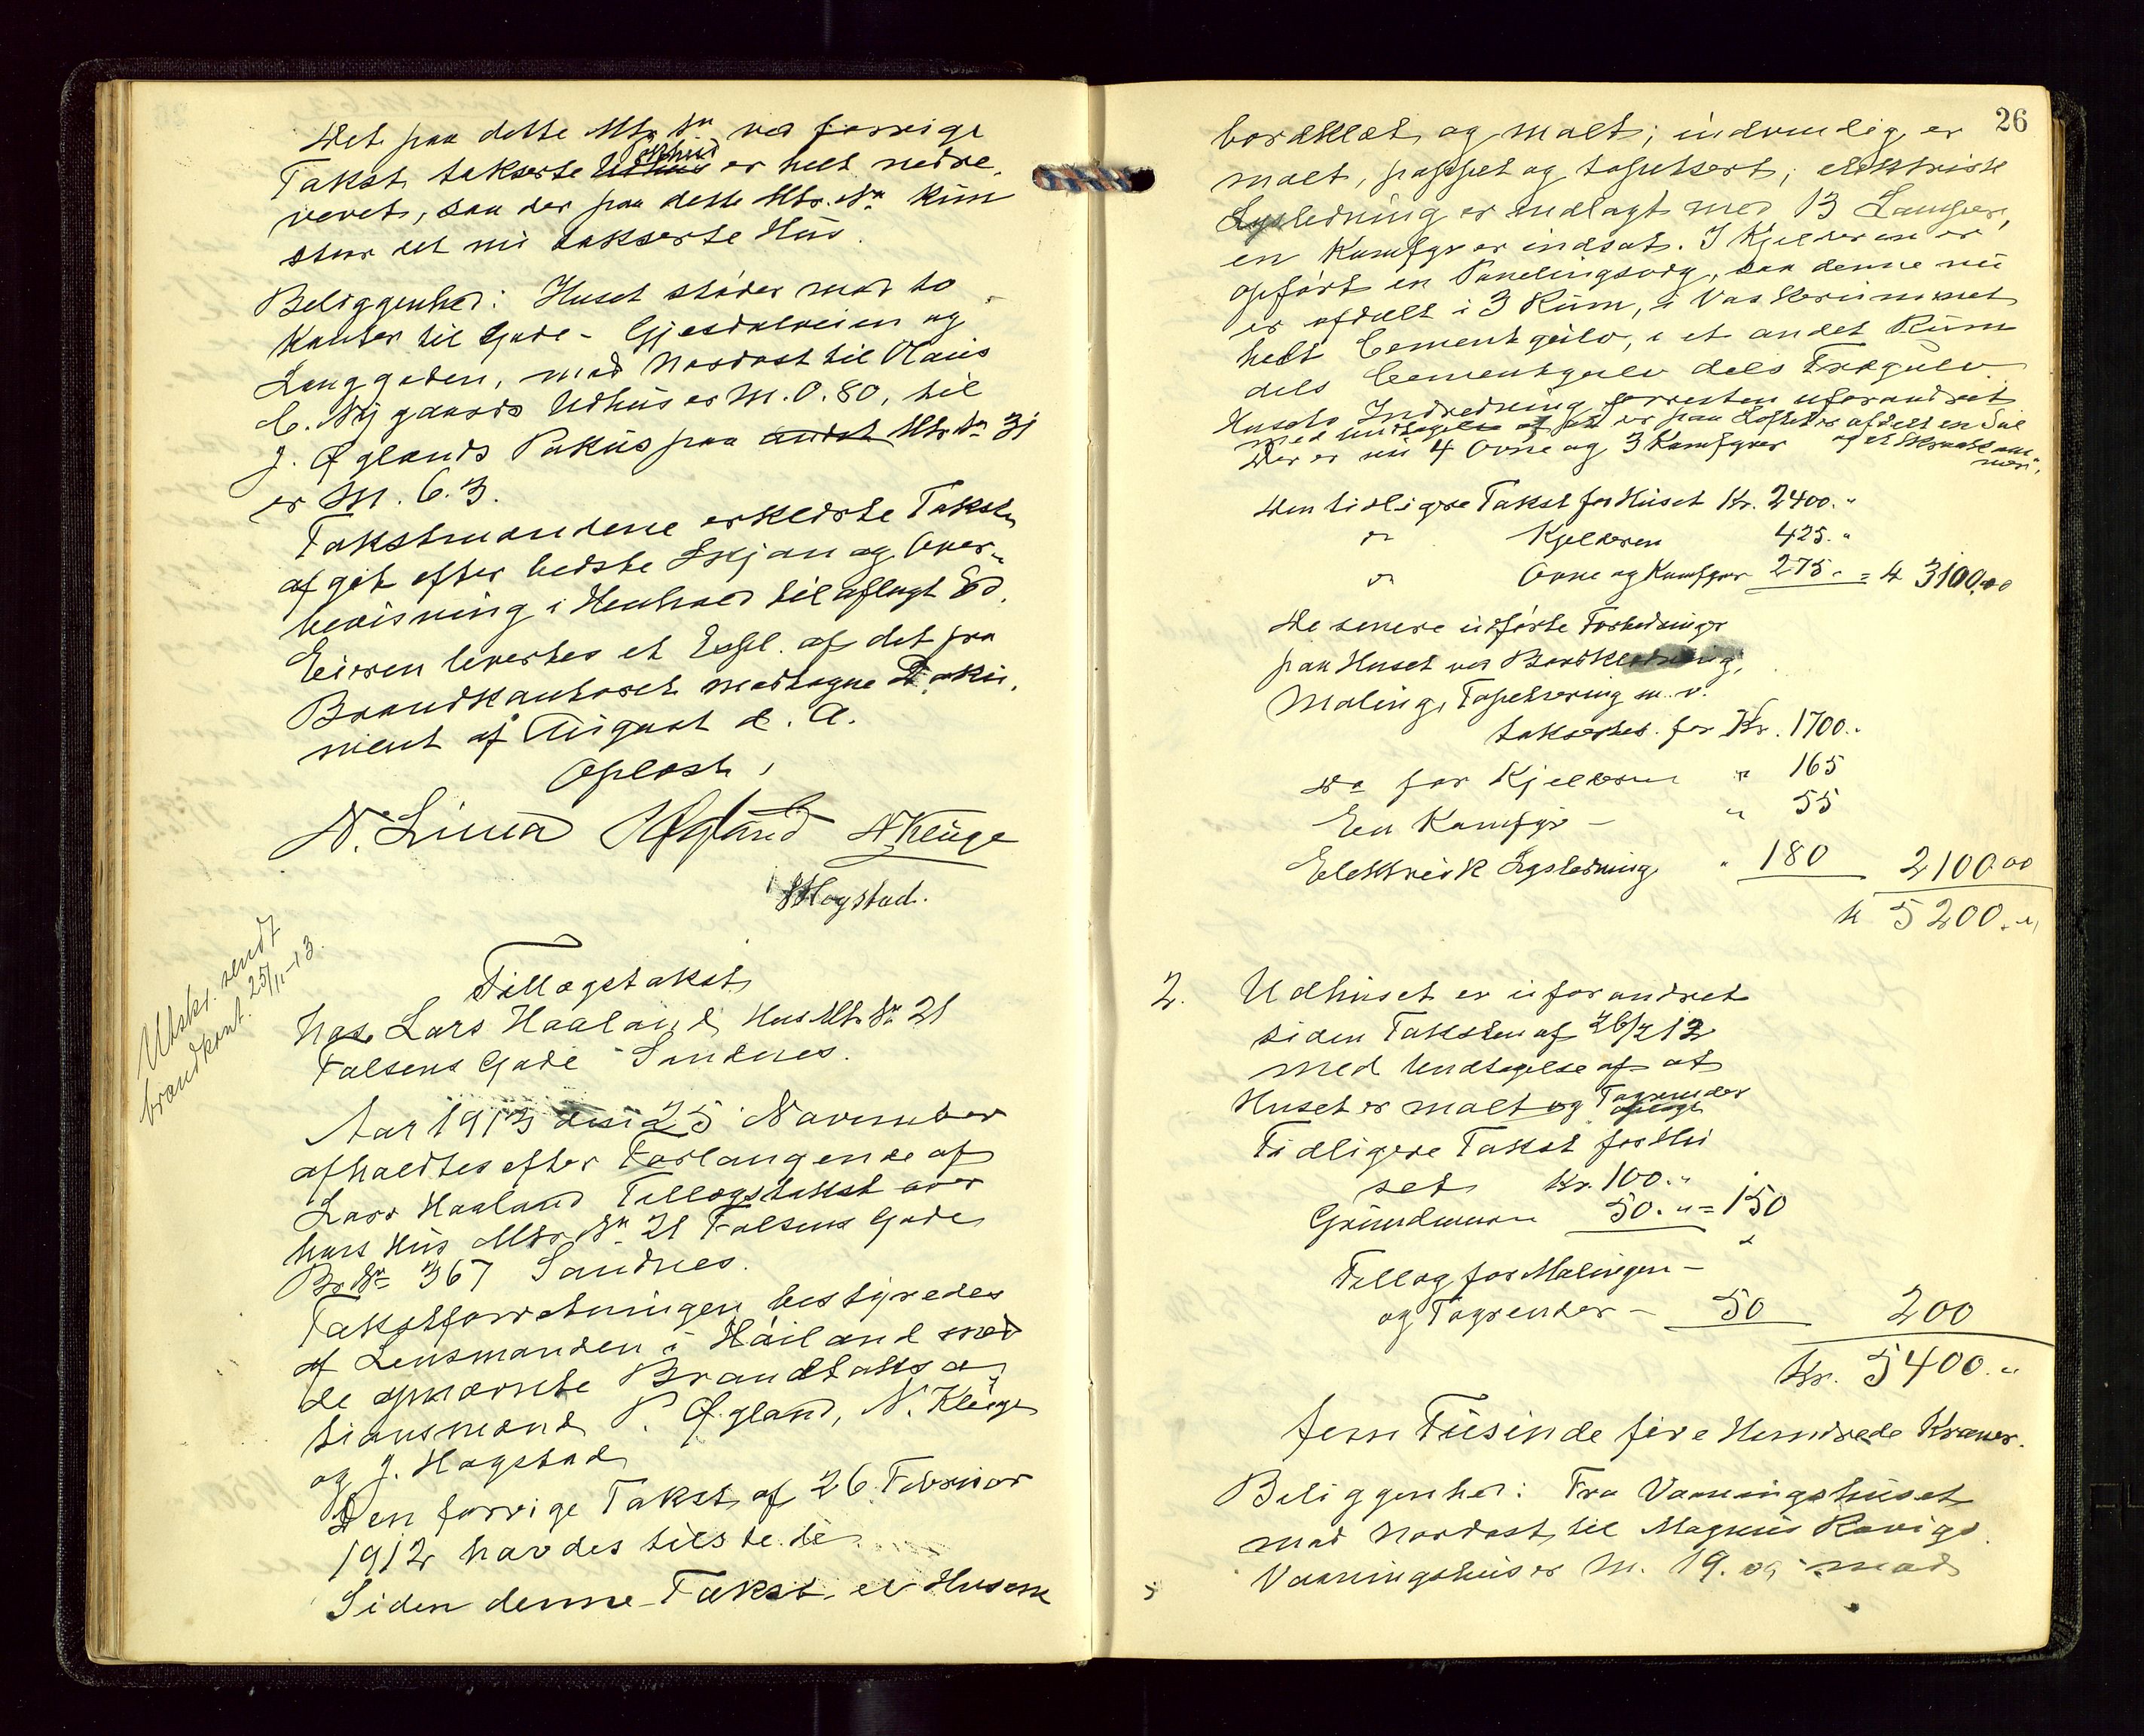 Det paa dette Mtr. Nr. ved forrige
Takst takserte Udhus er helt nedre-
vevet, saa der paa dette Mtr. Nr. kun
staar det nu takserte Hus.
Beliggenhed: Huset støder mod to
Kanter til Gade - Gjesdalveien og
Langgaden, mod Nordost til Olaus
C. Nygaards Udhus er M. 0.80, til
J. Øglands Pakhus paa andet Mtr. Nr. 31
er M. 6.3.
Takstmændene erklærte Taksten
afgit efter bedste Skjøn og Over-
bevisning i Henhold til aflagt Ed.
Eieren levertes et Expl. af det fra
Brandkontoret modtagne Doku-
ment af August d. A.
Oplæst,
N. Lima Øgland N. Kluge
J. Hogstad.
Utskr. sendt
brandkont. 25/11-13.
Tillægstakst
hos Lars Haaland, Hus Mtr. Nr. 21
Falsens Gade Sandnes.
Aar 1913 den 25 November
afholdtes efter Forlangende af
Lars Haaland Tillægstakst over
hans Hus Mtr. Nr. 21 Falsens Gade
Br. Nr. 367 Sandnes.
Takstforretningen bestyredes
af Lensmanden i Høiland med
de opnævnte Brandtaksa-
tionsmænd P. Øgland, N. Kluge
og J. Hogstad
Den forrige Takst af 26 Februar
1912 havdes tilstede.
Siden denne Takst er Husene
26
bordklæt og malt; indvendig er
malt, pappet og tapetsert; elektrisk
Lysledning er indlagt med 13 Lamper,
en Komfyr er indsat. I Kjelderen er
opført en Panelingsvæg, saa denne nu
er afdelt i 3 Rum, i Vaskerummet
helt Cementgulv, i et andet Rum
dels Cementgulv dels Trægulv
Husets Indredning forresten uforandret
med undtagelse af at er paa Loftet er afdelt en Sal
Der er nu 4 Ovne og 3 Komfyrer og et Skraakam-
mer.
Den tidligere Takst for Huset Kr. 2400.„
do Kjelderen 425.„
do Ovne og Komfyrer 275.„ = kr 3100,00
De senere udførte Forbedringer
paa Huset ved Bordklædning,
Maling, Tapetsering m. v.
taksertes for Kr. 1700.„
Do for Kjelderen „ 165
En Komfyr - „ 55
Elektrisk Lysledning „ 180 2100.00
kr 5200.„
2. Udhuset er uforandret
siden Taksten af 26/2 12
med Undtagelse af at
Huset er malt og Tagrender
Tidligere Takst for Hu
set Kr. 100.„
Grundmuren 50.„ = 150
Tillæg for Malingen -
og Tagrender - 50 200
Kr. 5400.„
fem Tusinde fire Hundrede Kroner.
Beliggenhed: Fra Vaaningshuset
mod Nordost til Magnus Ravigs
Vaaningshus er M. 19. og mod